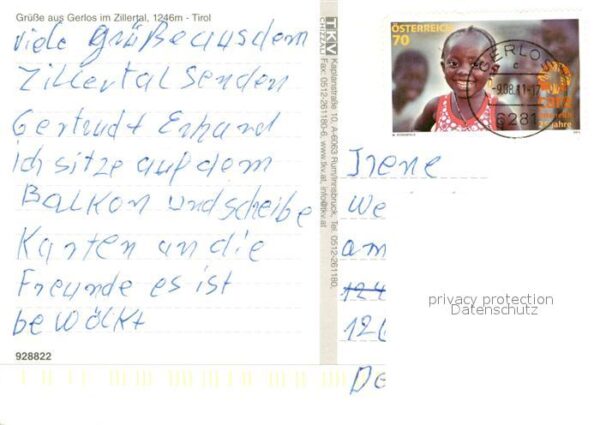 Grüße aus Gerlos im Zillertal, 1246m - Tirol
viele Grüße aus dem
Zillertal senden
Gertrudt Erhard
ich sitze auf dem
Balkon und scheibe
Karten an die
Freunde es ist
bewölkt
928822
TKV
Kaplanstraße 10, A-6063 Rum/Innsbruck, Tel. 0512-261180,
Fax: 0512-261180-6, www.tkv.at, info@tkv.at
ÖSTERREICH
70
GERLOS
c
-9.08.11-17
6281
25 Jahre
Irene
We
am
124
126
De
privacy protection
Datenschutz